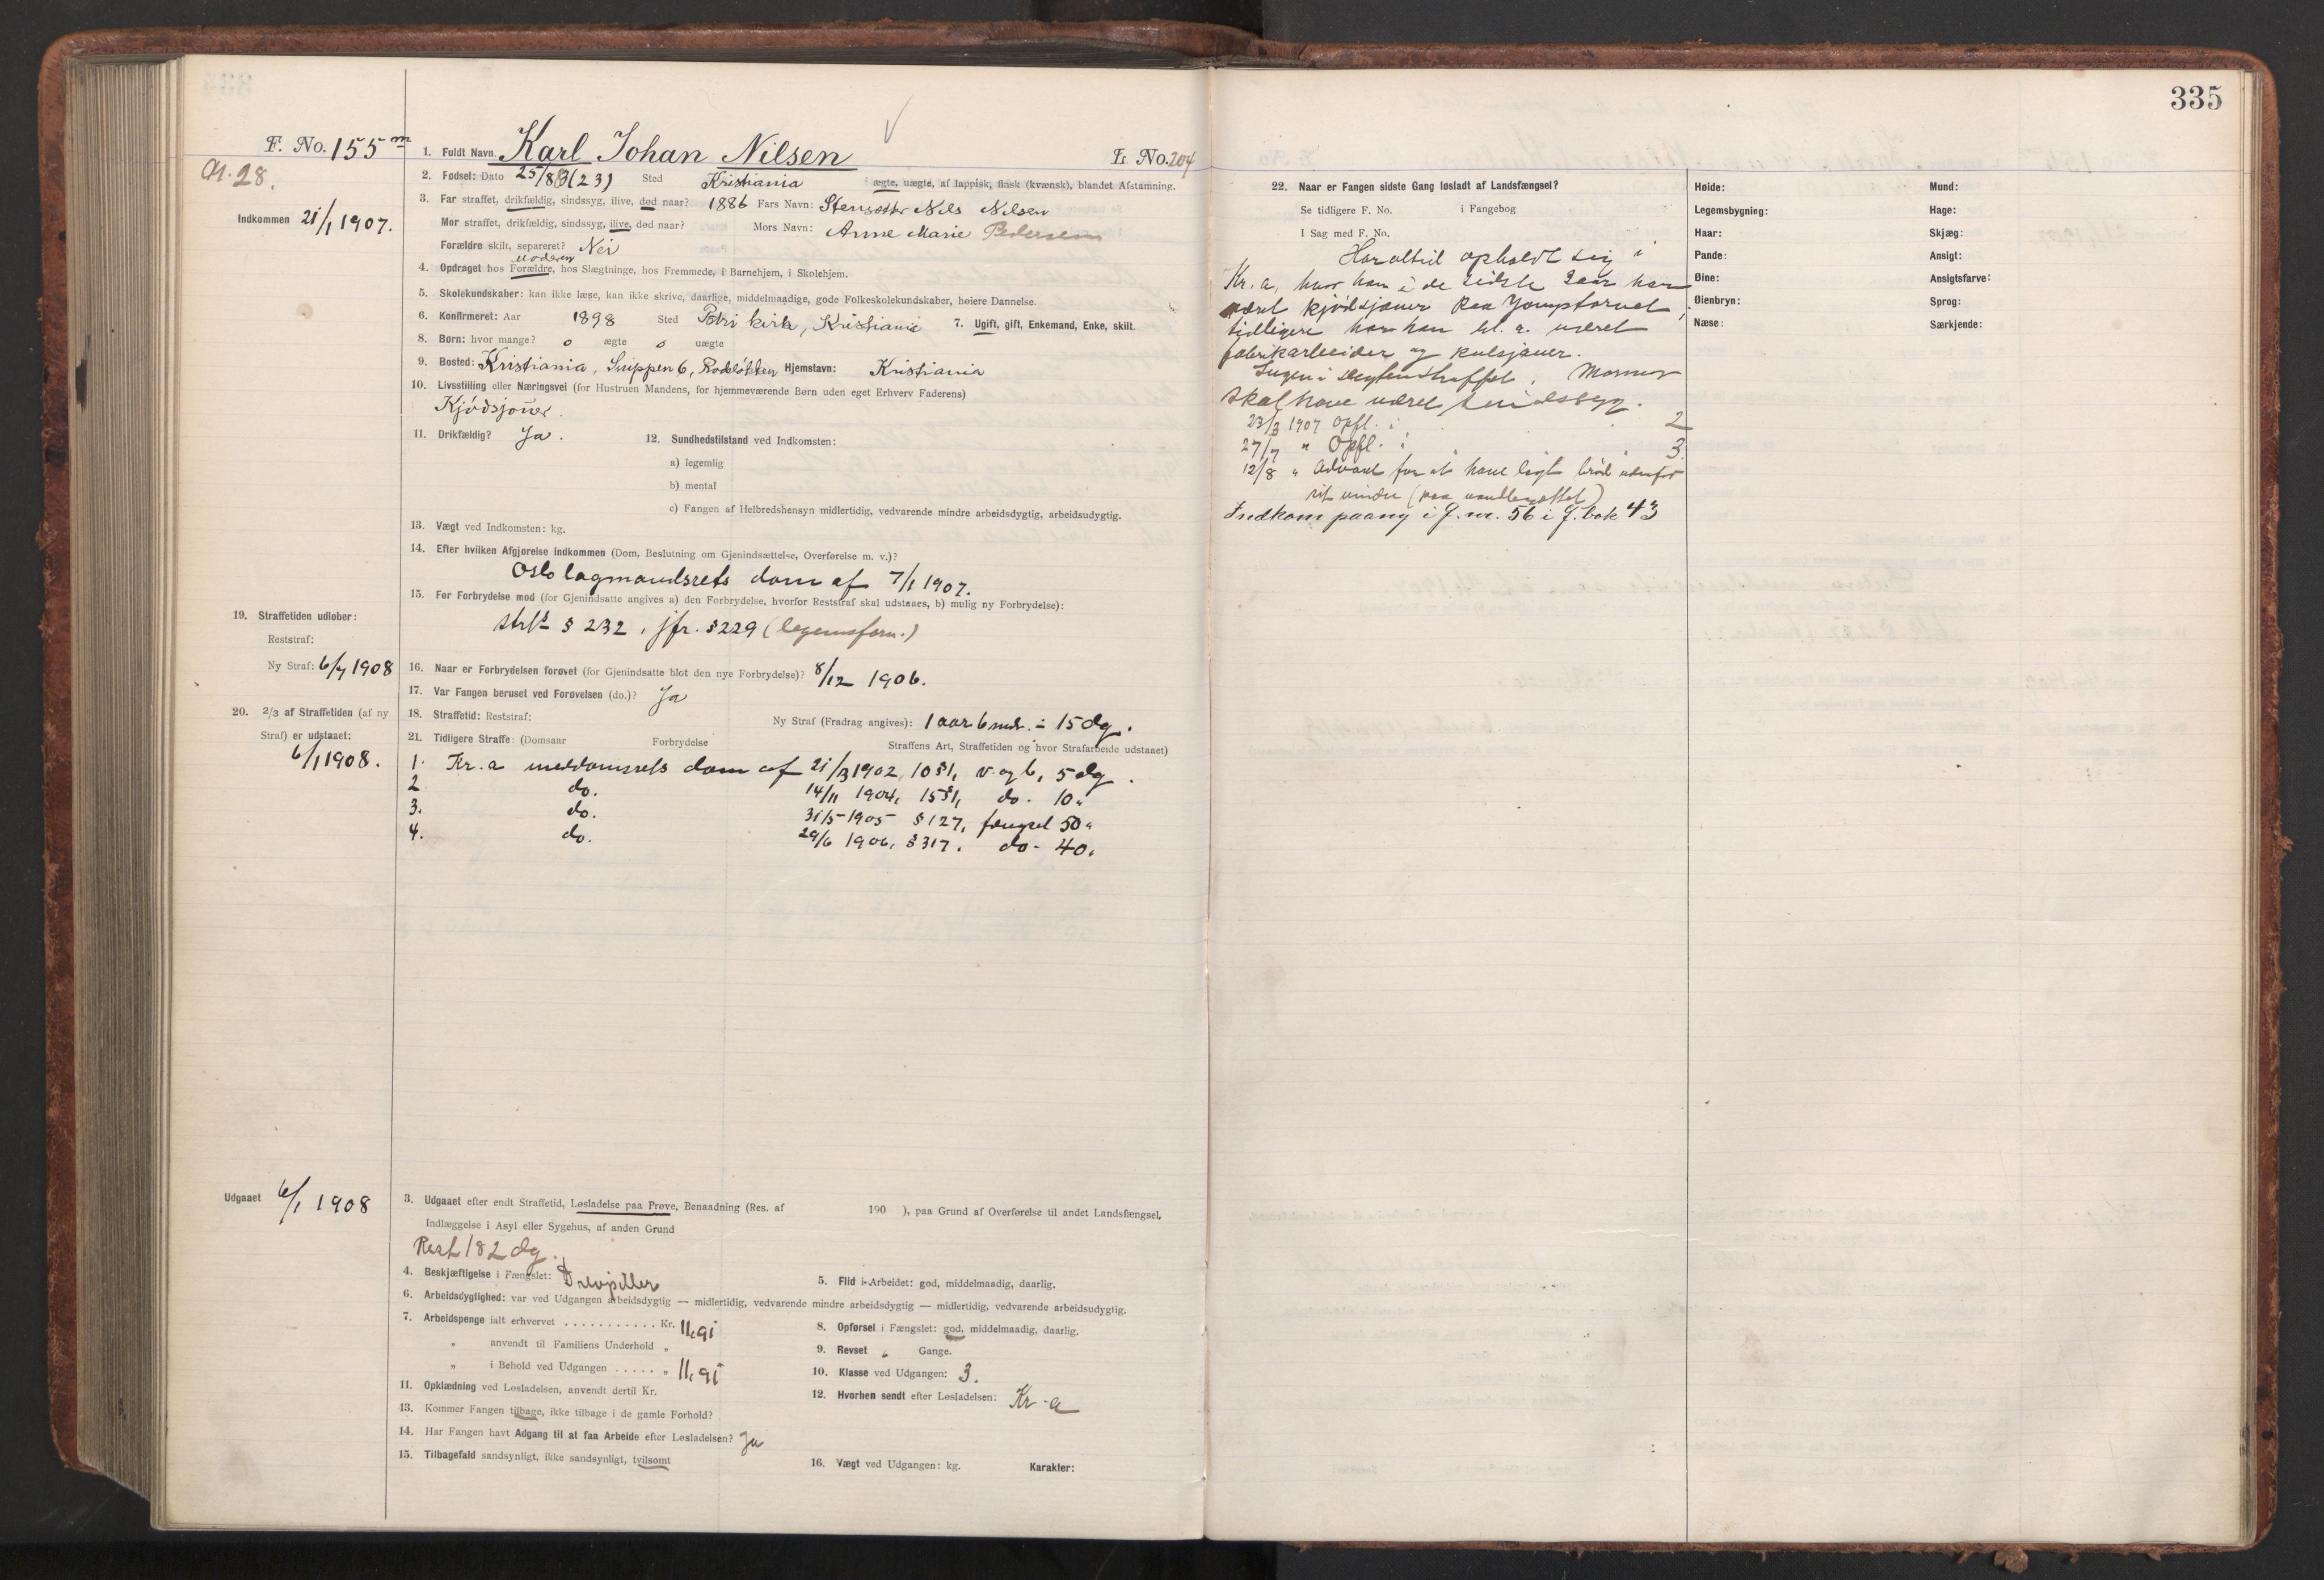 335
F. No. 155 m
Ar. 28.
Indkommen 21/1 1907.
1. Fuldt Navn Karl Johan Nilsen L No. 204
2. Fødsel: Dato 25/883 (23) Sted Kristiania ægte, uægte, af lappisk, finsk (kvænsk), blandet Afstamning.
3. Far straffet, drikfældig, sindssyg, ilive, død naar? 1886 Fars Navn: Nils Nilsen
Mor straffet, drikfældig, sindssyg, ilive, død naar? Mors Navn: Anne Marie Pedersen
Forældre skilt, separeret? Nei
moderen
4. Opdraget hos Forældre, hos Slægtninge, hos Fremmede, i Barnehjem, i Skolehjem.
5. Skolekundskaber: kan ikke læse, kan ikke skrive, daarlige, middelmaadige, gode Folkeskolekundskaber, høiere Dannelse.
6. Konfirmeret: Aar 1898 Sted Petri kirke, Kristiania 7. Ugift, gift, Enkemand, Enke, skilt.
8. Børn: hvor mange? o ægte o uægte
9. Bosted: Kristiania, Snippen 6, Rodeløkken Hjemstavn: Kristiania
10. Livsstilling eller Næringsvei (for Hustruen Mandens, for hjemmeværende Børn uden eget Erhverv Faderens)
Kjødsjouer.
11. Drikfældig? Ja. 12. Sundhedstilstand ved Indkomsten:
a) legemlig
b) mental
c) Fangen af Helbredshensyn midlertidig, vedvarende mindre arbeidsdygtig, arbeidsudygtig.
13. Vægt ved Indkomsten: kg.
14. Efter hvilken Afgjørelse indkommen (Dom, Beslutning om Gjenindsættelse, Overførelse m. v.)?
Oslo lagmandsrets dom af 7/1 1907.
15. For Forbrydelse mod (for Gjenindsatte angives a) den Forbrydelse, hvorfor Reststraf skal udstaaes, b) mulig ny Forbrydelse):
strfl. § 232, jfr. § 229 (legemsforn.)
19. Straffetiden udløber:
Reststraf:
Ny Straf: 6/7 1908
16. Naar er Forbrydelsen forøvet (for Gjenindsatte blot den nye Forbrydelse)? 8/12 1906.
17. Var Fangen beruset ved Forøvelsen (do.)? Ja
20. 2/3 af Straffetiden (af ny
Straf) er udstaaet:
6/1 1908.
18. Straffetid: Reststraf: Ny Straf (Fradrag angives): 1 aar 6 mdr. ÷ 15 dg.
21. Tidligere Straffe: (Domsaar Forbrydelse Straffens Art, Straffetiden og hvor Strafarbeide udstaaet)
1. Kr.a meddomsrets dom af 21/3 1902, 10 §1, v. og b, 5 dg.
2 do. 14/11 1904, 15 §1, do. 10 "
3. do. 31/5 1905 § 127, fængsel 50 "
4. do. 29/6 1906, § 317. do. 40 "
Udgaaet 6/1 1908
3. Udgaaet efter endt Straffetid, Løsladelse paa Prøve, Benaadning (Res. af 190 ), paa Grund af Overførelse til andet Landsfængsel,
Indlæggelse i Asyl eller Sygehus, af anden Grund
Rest 182 dg.
4. Beskjæftigelse i Fængslet: Drevpiller 5. Flid i Arbeidet: god, middelmaadig, daarlig.
6. Arbeidsdyglighed: var ved Udgangen arbeidsdygtig — midlertidig, vedvarende mindre arbeidsdygtig — midlertidig, vedvarende arbeidsudygtig.
7. Arbeidspenge ialt erhvervet . . . . . . . . . . . Kr. 11,91 8. Opførsel i Fængslet: god, middelmaadig, daarlig.
" anvendt til Familiens Underhold " 9. Revset " Gange.
" i Behold ved Udgangen . . . . . " 11,91 10. Klasse ved Udgangen: 3.
11. Opklædning ved Løsladelsen, anvendt dertil Kr. 12. Hvorhen sendt efter Løsladelsen: Kr-a
13. Kommer Fangen tilbage, ikke tilbage i de gamle Forhold?
14. Har Fangen havt Adgang til at faa Arbeide efter Løsladelsen? Ja
15. Tilbagefald sandsynligt, ikke sandsynligt, tvilsomt 16. Vægt ved Udgangen: kg. Karakter:
22. Naar er Fangen sidste Gang løsladt af Landsfængsel?
Se tidligere F. No. i Fangebog
I Sag med F. No.
Har altid opholdt sig i
Kr.a, hvor han i de sidste 2 aar har
været kjødsjouer paa Youngstorvet,
tidligere har han bl. a. været
fabrikarbeider og kulsjauer.
Ingen i slegten straffet. Mormor
skal have været sindssyg.
23/3 1907 Opfl. i 2
27/7 " Opfl. i 3.
12/8 " Advaret for at have lagt brød udenfor
sit vindu
Indkom paany i f. nr. 56 i f. bok 43
Høide: Mund:
Legemsbygning: Hage:
Haar: Skjæg:
Pande: Ansigt:
Øine: Ansigtsfarve:
Øienbryn: Sprog:
Næse: Særkjende: